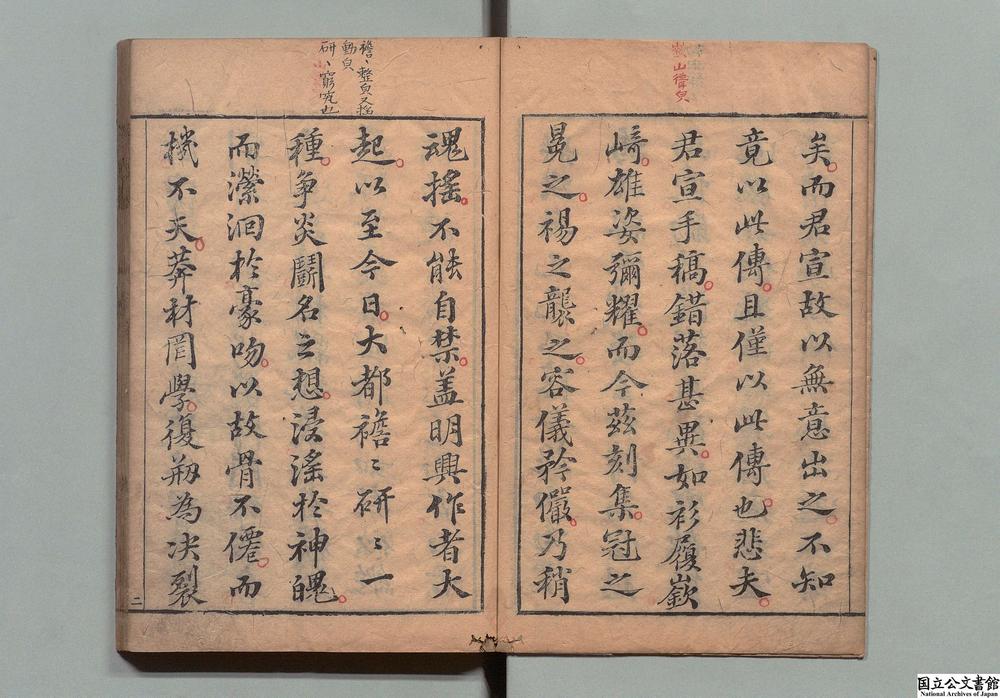 矣而君宣故以無意出之不知
竟以此傳且僅以此傳也悲夫
君宣手稿錯落甚異如衫履嶔
﨑雄姿彌耀而今茲刻集冠之
冕之裼之襲之容儀矜儼乃稍
襜〻整皃又搖
動皃
研〻窮究也
魂搖不能自禁盖明興作者大
起以至今日大都襜〻研〻一
種爭炎鬭名之想浸滛於神魄
而瀠洄於豪吻以故骨不僊而
機不天莽材罔學復刱為决裂
二
国立公文書館
National Archives of Japan